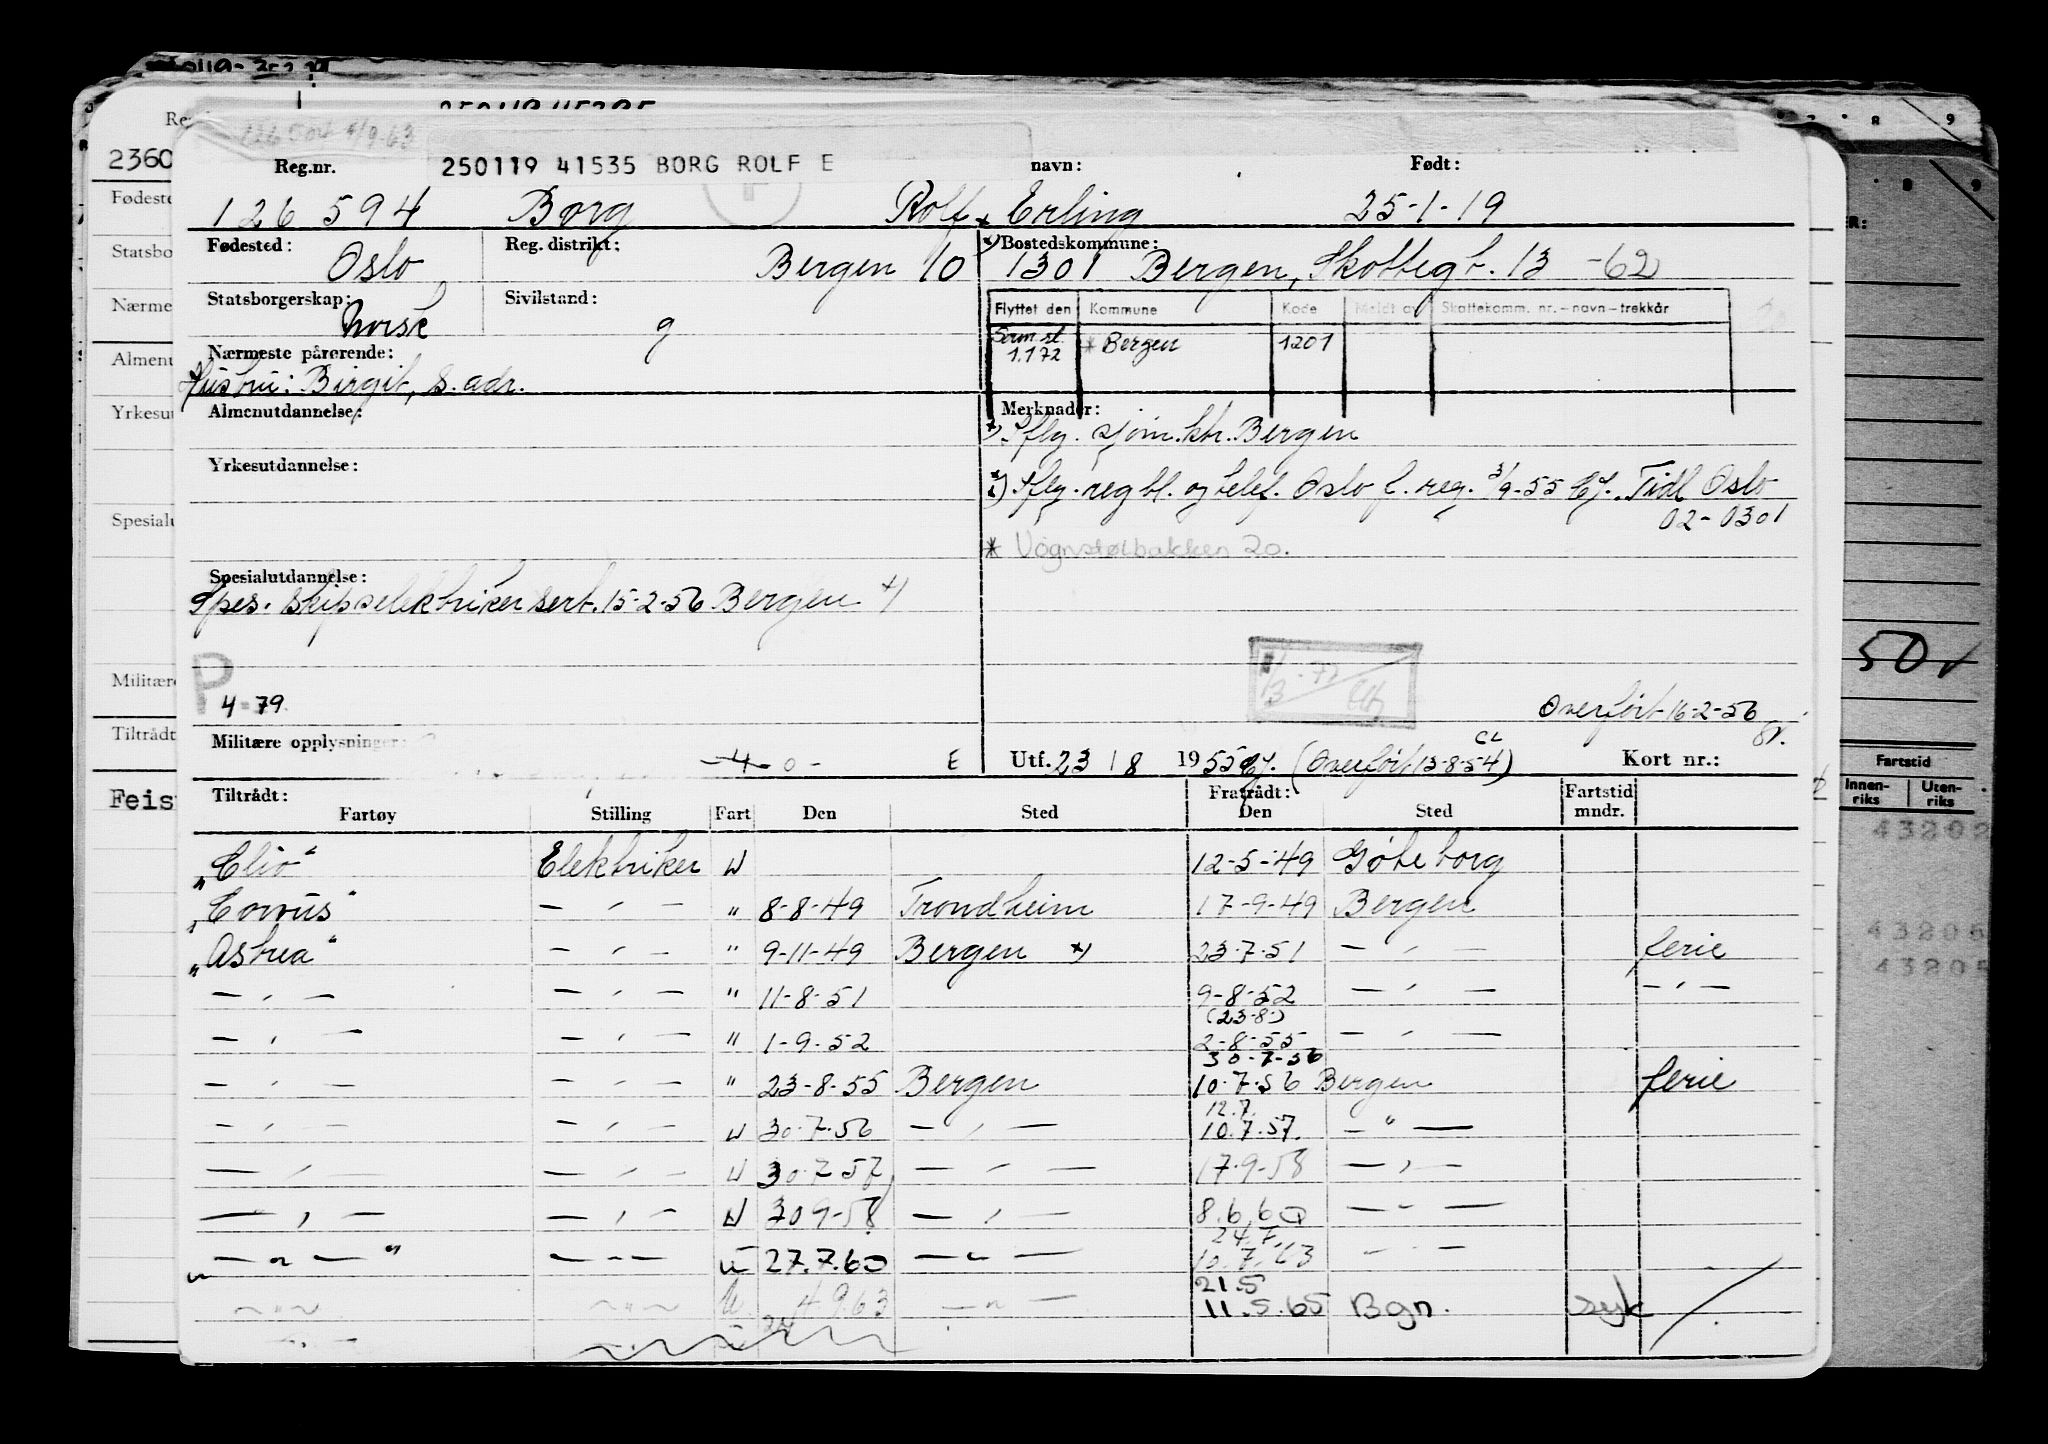 126 504 4/9-63
Reg.nr. 250119 41535 BORG ROLF E navn: Født:
126 594 Borg Rolf Erling 25-1-19
Fødested: Oslo Reg. distrikt: Bergen 10 Bostedskommune: 1301 Bergen, Skottegt. 13 -62
Statsborgerskap: Norsk Sivilstand: g
Flyttet den Kommune Kode Meldt av Skattekomm. nr.–navn–trekkår
1.1 72 * Bergen 1201
Nærmeste pårørende:
Hustru: Birgit, s. adr.
Almenutdannelse: Merknader:
x) Iflg. sjøm.ktr. Bergen
Yrkesutdannelse:
Iflg. reg bl. og telef. Oslo s. reg. 3/9-55 Tidl Oslo
02-0301
* Vognstølbakken 20.
Spesialutdannelse:
Spes. skipselektriker sert. 15-2-56 Bergen x)
P
4-79
Overført 16-2-56
Militære opplysninger: -4- 0 - E Utf. 23 / 8 1955 (Overført 13-8-54) Kort nr.:
Tiltrådt: Fratrådt: Fartstid
Fartøy Stilling Fart Den Sted Den Sted mndr.
"Clio" Elektriker U 12-5-49 Göteborg
"Corvus" — " — " 8-8-49 Trondheim 17-9-49 Bergen
"Astrea" — " — " 9-11-49 Bergen x) 23-7-51 — " — ferie
— " — — " — " 11-8-51 9-8-52 — " — — " —
(23-8)
— " — — " — " 1-9-52 2-8-55 — " —
30-7-56
— " — — " — " 23-8-55 Bergen 10-7-56 Bergen ferie
12.7.
— " — — " — U 30-7-56 — " — 10.7.57. — " —
— " — — " — U 30-7-57 — " — 17-9-58 — " —
— " — — " — U 30 9-58 — " — 8.6.60 — " —
24.7.
— " — — " — U 27.7.60 — " — 10.7.63 — " —
21.5
— " — — " — U 4.9.63 — " — 11.5.65 Bgn. syk
2360
Fødeste
Statsbo
Nærme
Almenu
Yrkesut
Spesialu
Militære
Tiltrådt
Feis
8 9
8 9
50
Fartstid
Innen-riks Uten-riks
43202
43205
43205